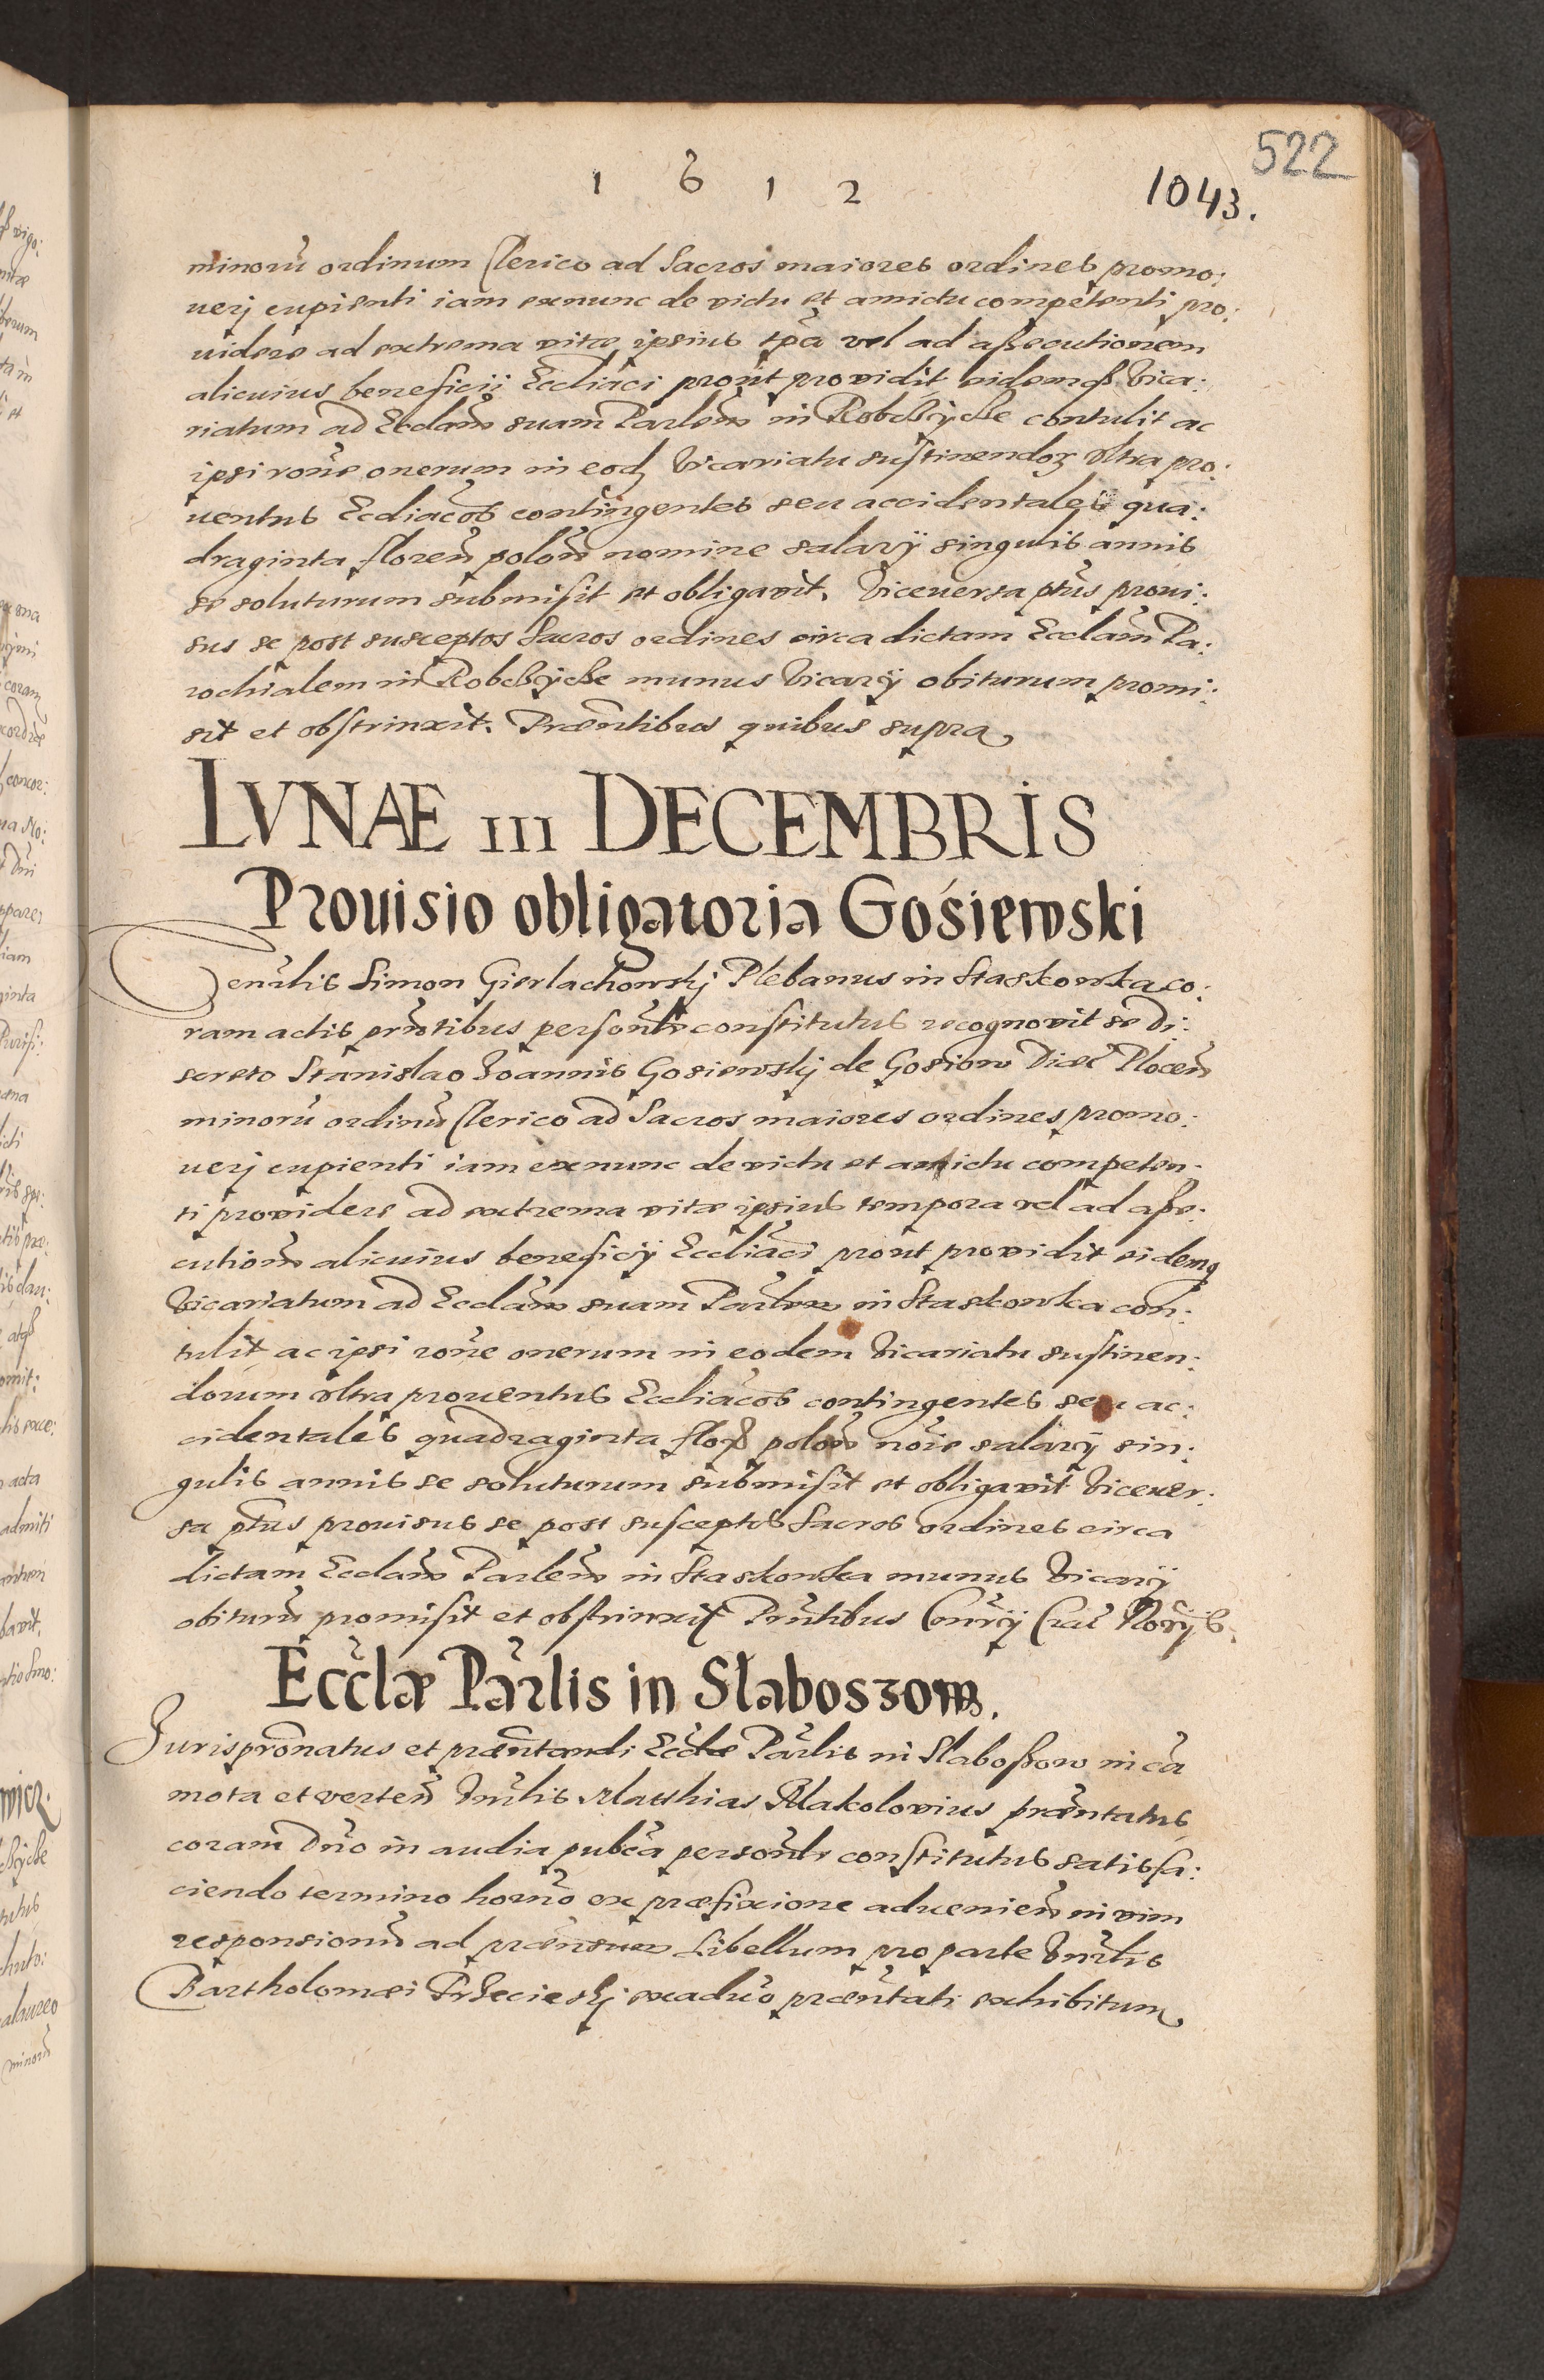 522
1 6 1 2
1043.
minorũ ordinum Clerico ad Sacros maiores ordines promo:
uerj cupienti iam exnunc de victu et amictu competenti pro:
uidere ad extrema vitæ ipsius tpa vel ad aßecutionem
alicuius beneficii Eccliaci prout providit eidemqȝ Vica:
riatum ad Ecclam suam Parlem in Robczycze contulit ac
ipsi rone onerum in eodȝ Vicariatu sustinendoȝ vltra pro:
uentus Eccliacos contingentes seu accidentales qua:
draginta floren polon nomine salarij singulis annis
se soluturum submisit et obligavit. Viceuersa ptus proui:
sus se post susceptos Sacros ordines circa dictam Ecclam Pa:
rochialem in Robczycze munus Vicarij obiturum promi:
sit et obstrinxit. Præntibus quibus supra
LVNÆ III DECEMBRIS
Prouisio obligatoria Gosiewski
Genrlis Simon Gierlachowskj Plebanus in Staskowka co:
ram actis prntibus personlr constitutus recognovit se Di:
screto Stanislao Joannis Gosiewskj de Gosiow Diæc Plocen
minorũ ordinũ Clerico ad Sacros maiores ordines promo:
uerj cupienti iam exnunc de victu et amictu competen:
ti providere ad extrema vitæ ipsius tempora vel ad aße:
cutionem alicuius beneficij Eccliaci prout providit eidemq
Vicariatum ad Ecclam suam Parlem in Staskowka con:
tulit ac ipsi rone onerum in eodem Vicariatu sustinen:
dorum vltra prouentus Eccliacos contingentes seu ac:
cidentales quadraginta flor polon noie salarij sin:
gulis annis se soluturum submisit et obligavit Viceuer:
sa ptus prouisus se post susceptos Sacros ordines circa
dictam Ecclam Parlem in Staskowka munus Vicarij
obiturũ promisit et obstrinxit Prntibus Consrij Crac Norijs.
Ecclæ Parlis in Słaboszow.
Jurispronatus et præntandi Ecclæ Parlis in Slaboßow in ca
mota et verten Vnrlis Matthias Makolovius præntatus
coram Dno in audia pubca personlr constitutus satisfa:
ciendo termino horno ex præfixione advenien in vim
responsionũ ad prænsum Libellum pro parte Vnrlis
Bartholomæi Przecieskj exaduo præntati exhibitum